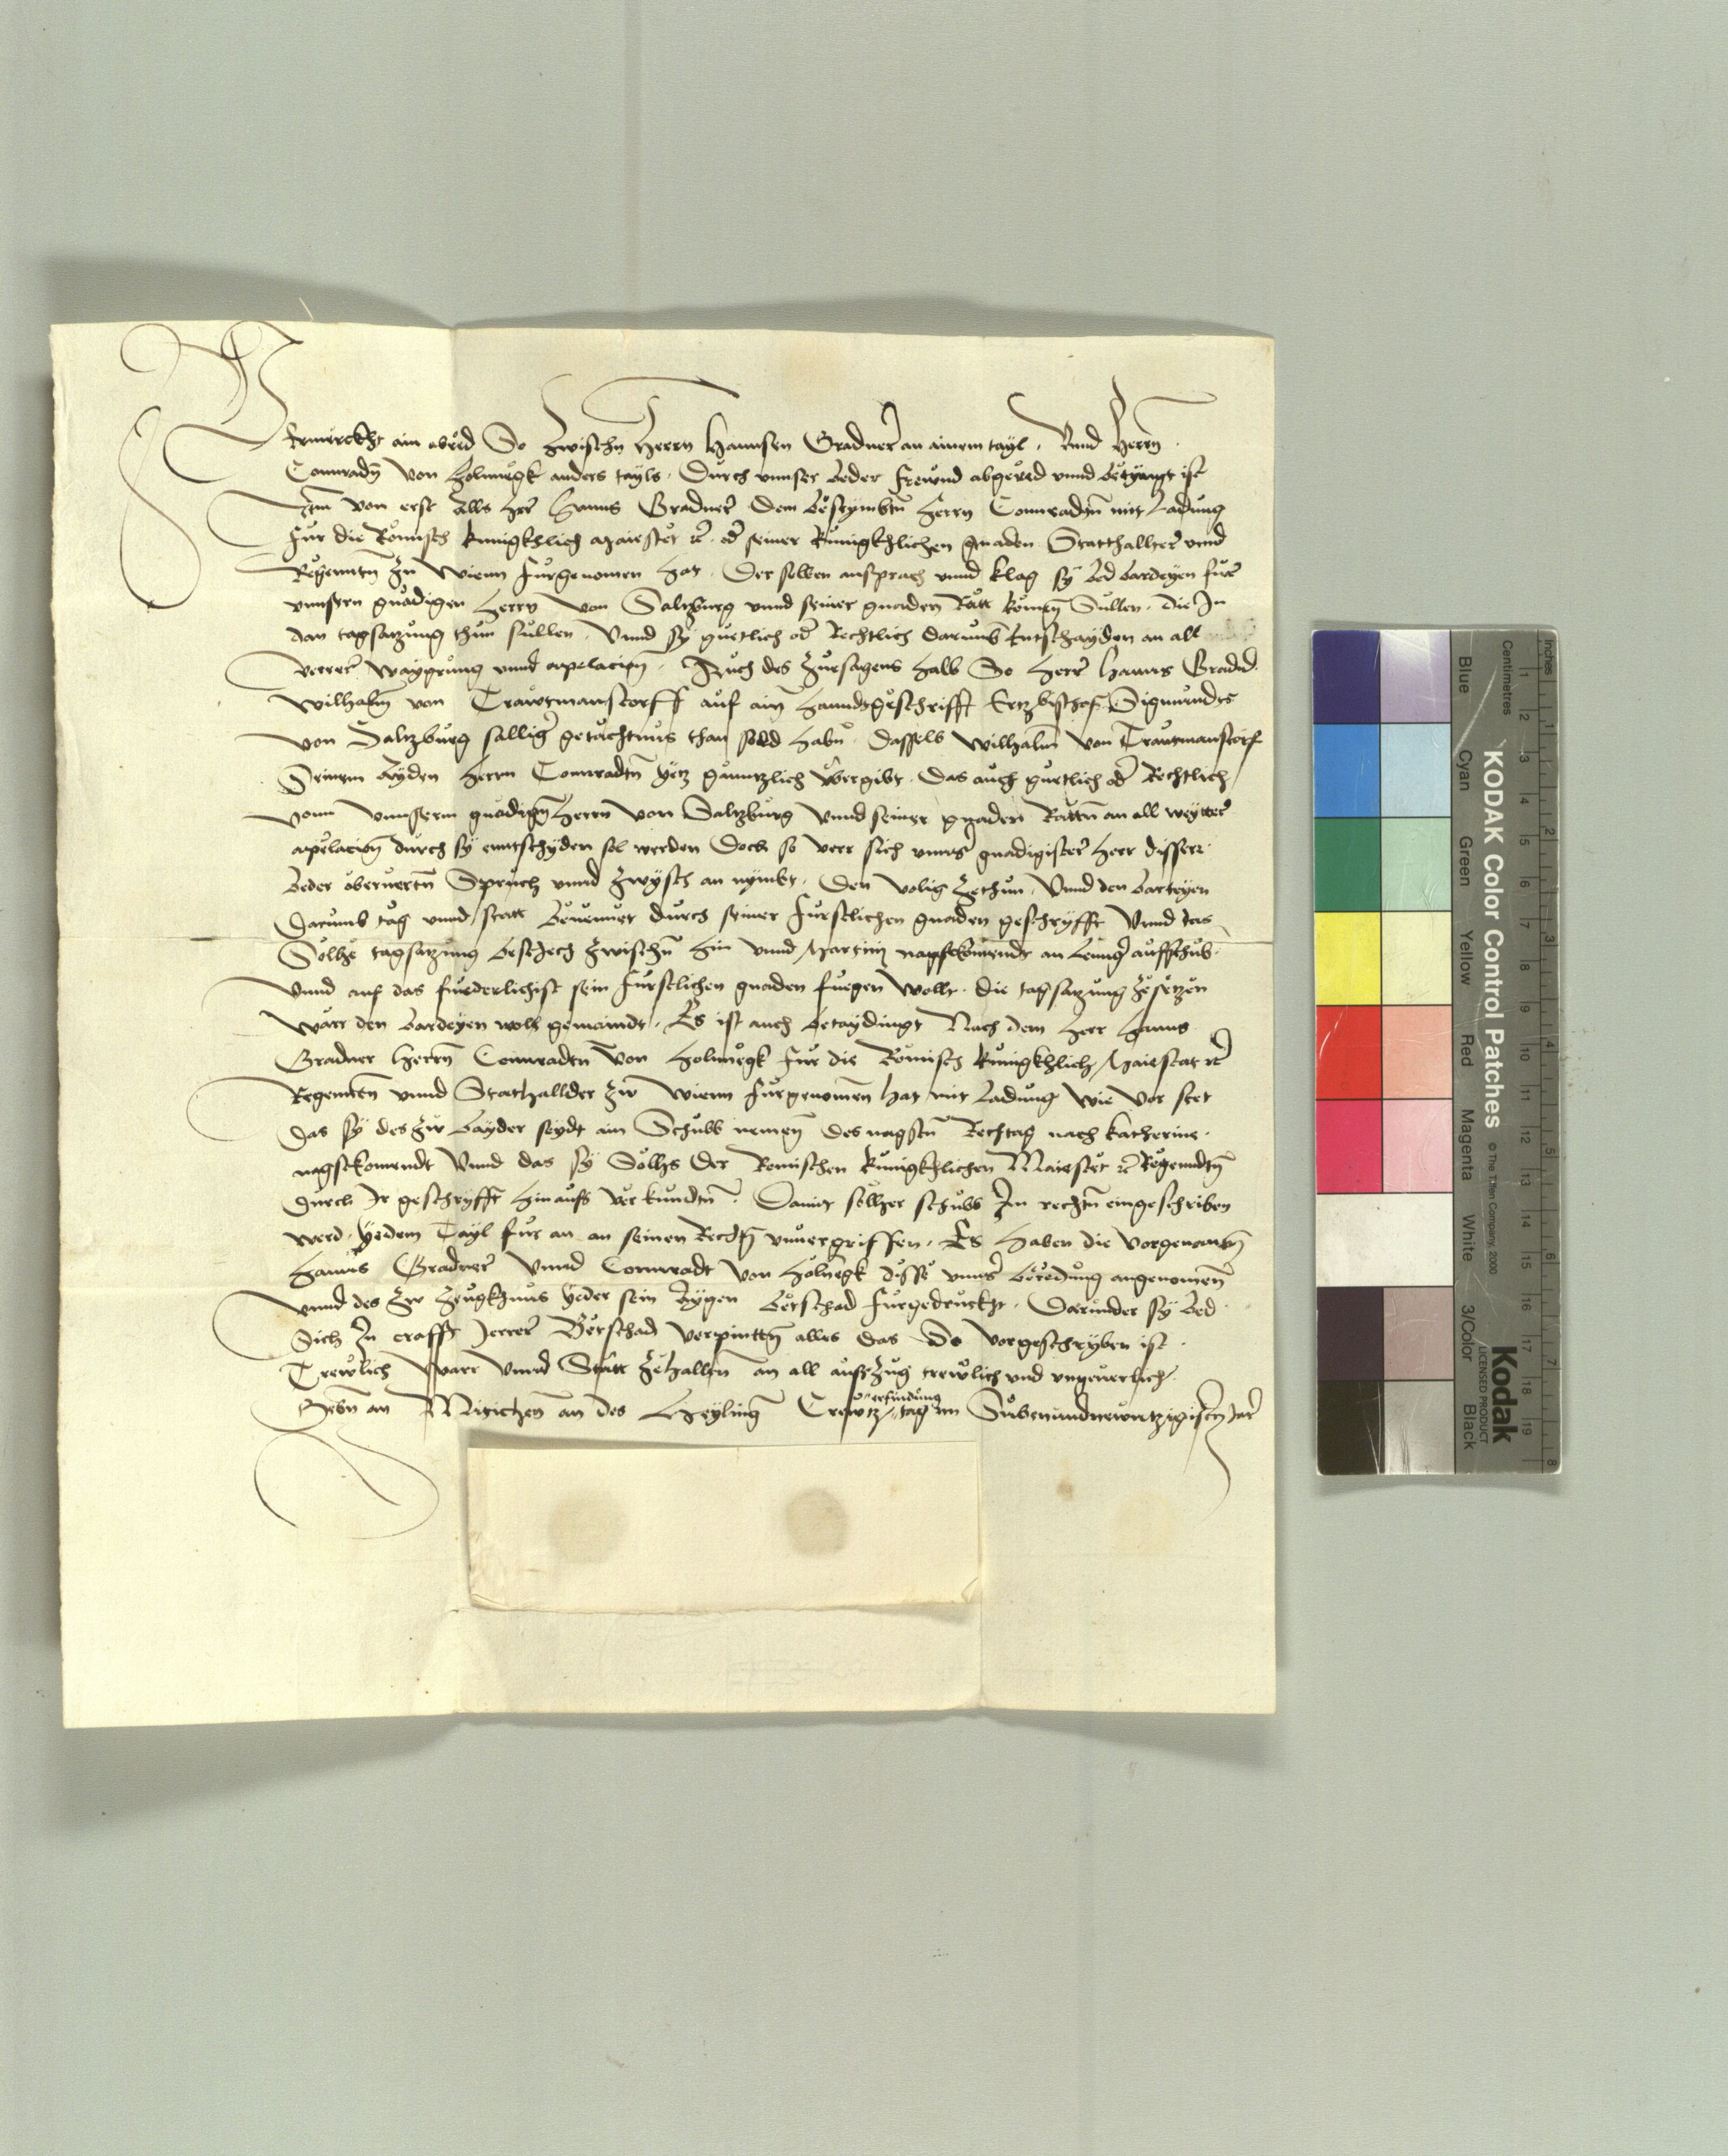 Vermerckht ain abred So Zwischn Herrn Hannsen Gradner an ainem tayl. Vnnd Herrn
Connradn von Holnnegk anders tayls. Durch vnnser beder freund abgeredt vnnd betyngt ist
Am von erst Alls Her Hanns Gradner dem bestymbtn Herrn Connradtn mit Ladung
Fur die Romisch kunigkhlich Maiestet etc. od seiner kunigkhlichen gnaden Statthallter vnnd
Regenntn Zu Wienn furgenomen hat. Der selben ansprach vnnd klag sy bed bardeyen fur
vnnsern gnadigen Herrn von Saltzburg vnnd seiner gnaden Rått komen Sullen. Die In
dan tagsatzung thun sullen. Vnnd sy guetlich od Rechtlich darumb Entschayden an all
verrer waygrung vnnd apelacion. Auch des Zuesagens halb So Herr Hanns Gradn
Wilhalm von Trawtmanstorff auf ain Hanndtgeschrifft Ertzbischof Sigmundts
von Saltzburg sallig getåchtnus than sold habn. Dasselb Wilhalm von Trautmanstorf
Seinem Ayden Herrn Connradtn yetz gånntzlich ubergibt. Das auch guetlich od Rechtlich
vonn vnnserm gnadign Herrn von Saltzburg vnnd seiner gnaden Råttn an all weytter
apelacion durch sy enntschyden sol werden Doch so verr sich vnnser gnadigister Herr disserr
beder oberuertn Spruch vnnd Zwysch an nymbt. Den volig Zethun. Vnnd den barteyen
Darumb tag vnnd statt benennet durch seiner furstlichen gnaden geschryfft Vnnd das
Solhe tagsatzung beschech Zwischn hin vnnd Martini nagstkomendt an lenng auffschub.
Vnnd auf das furderlichist sein furstlichen gnaden fuegen wollt. Die tagsatzung Zesetzen
war den bardeyen woll gemaindt. Es ist auch betaydingt Nach dem Herr Hanns
Gradner Herrn Connraden von Holnnegk fur die Romisch kunigkhlich Maiestat etc
Regenten vnnd Stathallder Zw Wienn furgenomen hat mit Ladung wie vor stet
Das sy des Zw bayder seydt ain Schub nemen des nagstn Rechtag nach katherine.
nagstkomendt Vnnd das sy Solhs der Romischen kunigkhlichen Maiestet etc Regenndtn
durch Ir geschryfft hinaufs verkundtn. Damit solher schub In rechtn eingeschriben
werd. Yedem Tayl fur an an seinen Rechtn vnuergriffen. Es haben die vorgenantn
Hanns Gradner Vnnd Connradt von Holnegk disse vnns beredung angenomen
Vnnd des Zw Zeugkhnus yeder sein Aygen betschad furgedruckht. Darunder sy bed
Sich In crafft Jerrer Betschad verpinttn alles das So vorgeschryben ist.
Trewlich Warr Vnnd Statt Zehalltn an all aufszug trewlich vnd vngeuerlich.
erfindung
Gebn an Mitichen an des Heyling Crewtz tag im Subenundnewntzigisten Jar
KODAK Color Control Patches © The Tiffen Company, 2000
Kodak
LICENSED PRODUCT
Blue Cyan Green Yellow Red Magenta White 3/Color Black
Inches 1 2 3 4 5 6 7 8
Centimetres 1 2 3 4 5 6 7 8 9 10 11 12 13 14 15 16 17 18 19